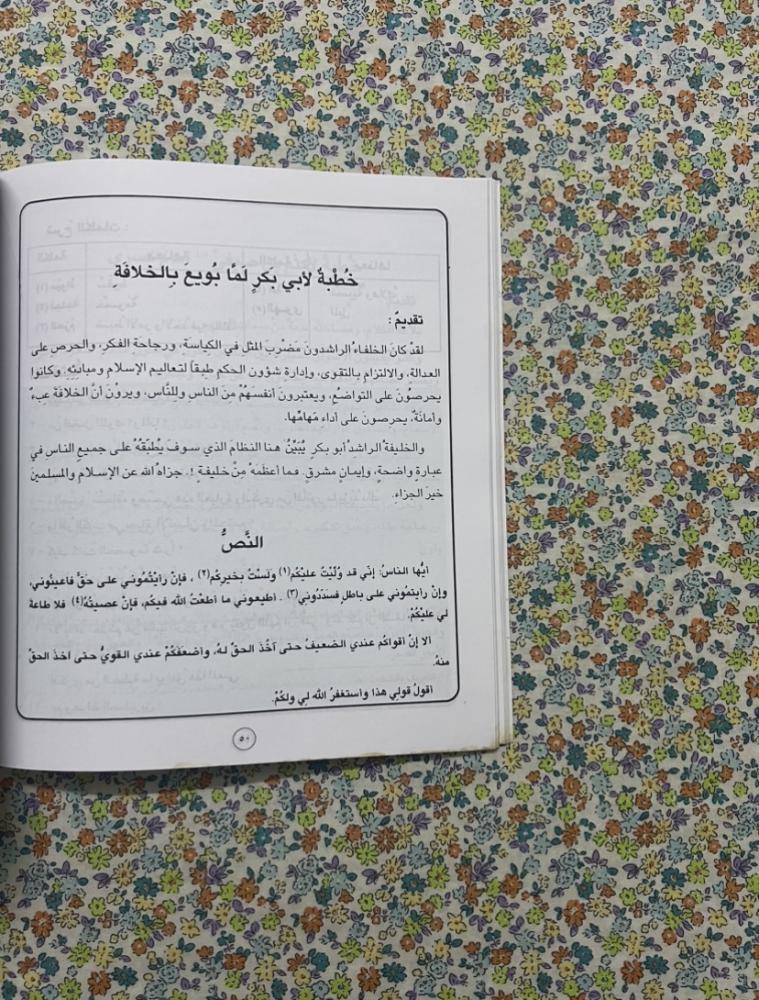 خُطْبةٌ لأبي بَكرٍ لَمَّا بُويعَ بِالخلافَةِ
تقديمٌ :
لقدْ كانَ الخلفاءُ الراشدونَ مَضْرِبَ المثلِ في الكياسةِ، ورجاحةِ الفكرِ، والحرصِ على
العدالةِ، والالتزامِ بالتقوى، وإدارةِ شؤونِ الحكمِ طبقاً لتعاليمِ الإسلامِ ومبادئِهِ. وكانوا
يحرصونَ على التواضعِ، ويعتبرونَ أنفسَهُمْ مِنَ الناسِ وللنَّاسِ، ويروْنَ أنَّ الخلافةَ عبءٌ
وأمانةٌ يحرصونَ على أداءِ مَهامِّها.
والخليفةُ الراشدُ أبو بكرٍ يُبَيِّنُ هنا النظامَ الذي سوفَ يُطَبِّقُهُ على جميعِ الناسِ في
عبارةٍ واضحةٍ، وإيمانٍ مشرقٍ. فما أعظمَهُ مِنْ خليفةٍ !. جزاهُ اللهُ عن الإسلامِ والمسلمينَ
خيرَ الجزاءِ.
النَّصُّ
أيُّها الناسُ: إنّي قد وُلِّيتُ عليْكُم(١) ولَسْتُ بخيرِكُم(٢) ، فإنْ رأيْتُمُوني على حَقٍّ فأعينُوني،
وإنْ رأيتمُوني على باطلٍ فسَدِّدُوني(٣) . أطيعوني ما أطعْتُ اللهَ فيكُم، فإنْ عصيتُهُ(٤) فلا طاعةَ
لي عليْكُمْ.
ألا إنَّ أقواكُم عندي الضعيفُ حتى آخُذَ الحقَّ لهُ، وأضعفَكُمْ عندي القويُّ حتى آخذَ الحقَّ
منهُ.
أقولُ قولي هذا وأستغفرُ اللهَ لي ولكُمْ.
٥٠